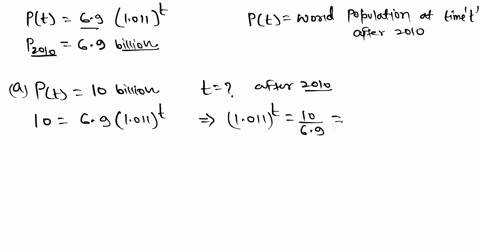 P(t) = 6.9 (1.011)^t
P(t) = World Population at time 't' after 2010
P₂₀₁₀ = 6.9 billion
(a) P(t) = 10 billion t = ? after 2010
10 = 6.9 (1.011)^t ⇒ (1.011)^t = 10/6.9 =